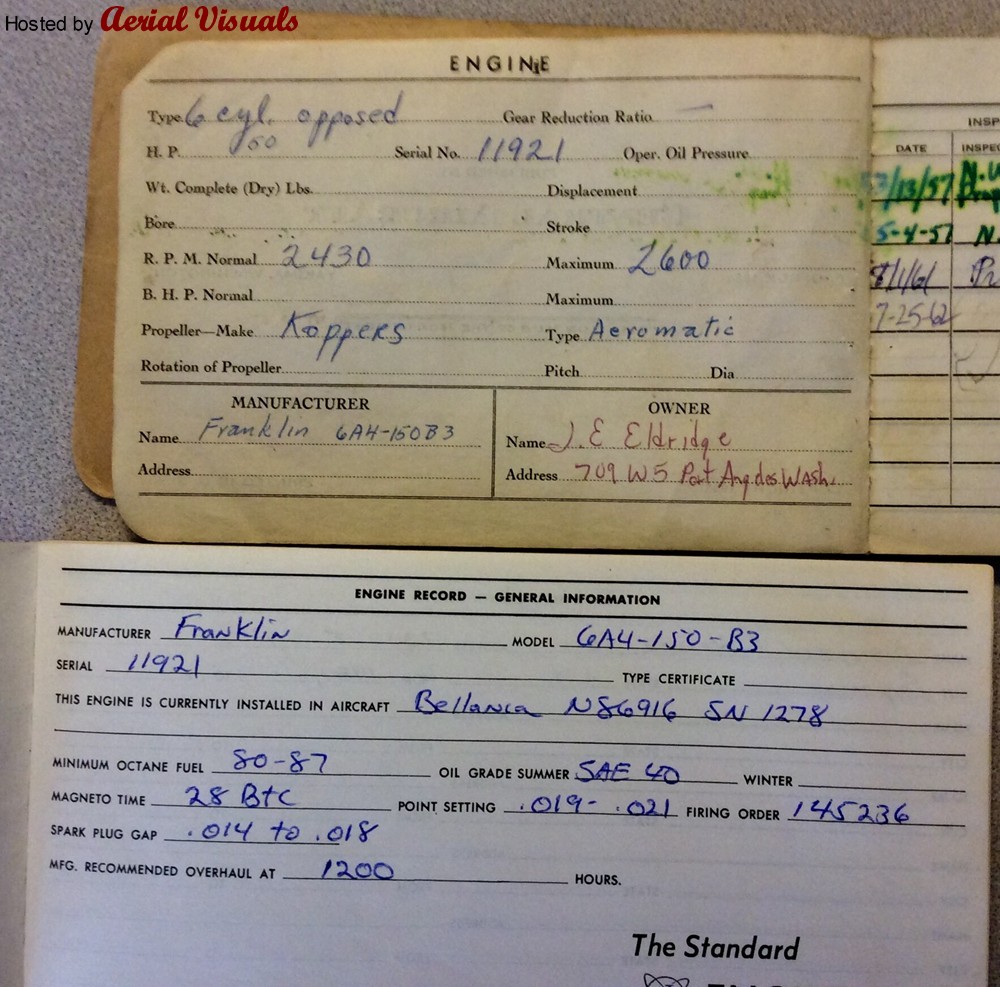 Hosted by Aerial Visuals
ENGINE
Type 6 cyl. opposed Gear Reduction Ratio —
H. P. 150 Serial No. 11921 Oper. Oil Pressure
Wt. Complete (Dry) Lbs. Displacement
Bore Stroke
R. P. M. Normal 2430 Maximum 2600
B. H. P. Normal Maximum
Propeller—Make Koppers Type Aeromatic
Rotation of Propeller Pitch Dia
MANUFACTURER
Name Franklin 6A4-150B3
Address
OWNER
Name J. E Eldridge
Address 709 W 5 Port Angeles Wash.
INSP
DATE INSPEC
3/13/57 N.W
5-4-57 N.
8/1/61 Pr
7-25-62
ENGINE RECORD — GENERAL INFORMATION
MANUFACTURER Franklin MODEL 6A4-150-B3
SERIAL 11921 TYPE CERTIFICATE
THIS ENGINE IS CURRENTLY INSTALLED IN AIRCRAFT Bellanca N86916 SN 1278
MINIMUM OCTANE FUEL 80-87 OIL GRADE SUMMER SAE 40 WINTER
MAGNETO TIME 28 BTC POINT SETTING .019- .021 FIRING ORDER 145236
SPARK PLUG GAP .014 to .018
MFG. RECOMMENDED OVERHAUL AT 1200 HOURS.
The Standard